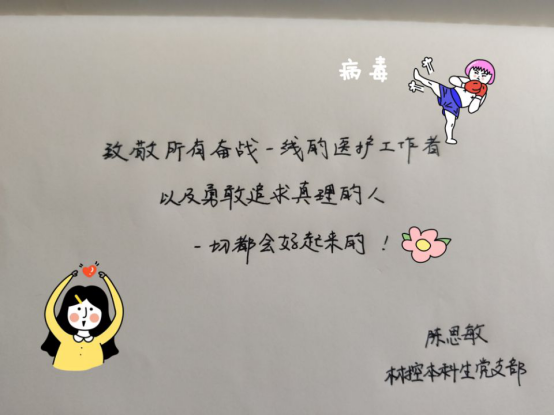 病毒
致敬所有奋战一线的医护工作者
以及勇敢追求真理的人
一切都会好起来的！
陈思敏
林控本科生党支部